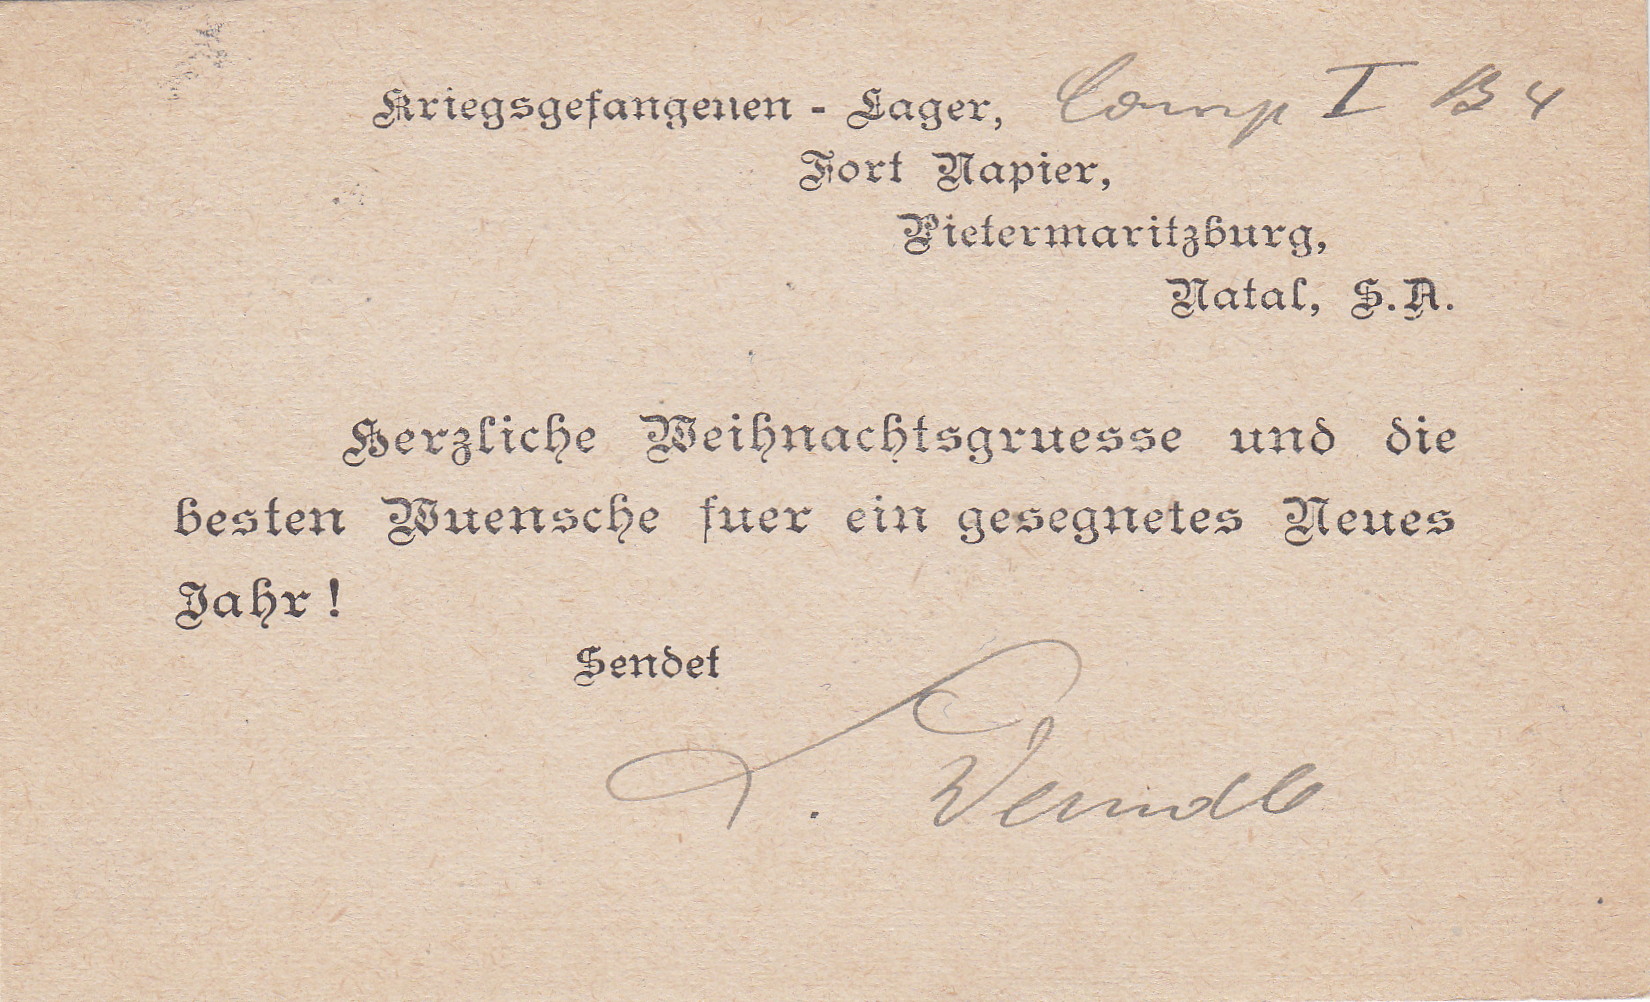 Kriegsgefangenen - Lager, Comp I B 4
Fort Napier,
Pietermaritzburg,
Natal, S.A.
Herzliche Weihnachtsgruesse und die
besten Wuensche fuer ein gesegnetes Neues
Jahr !
Sendet